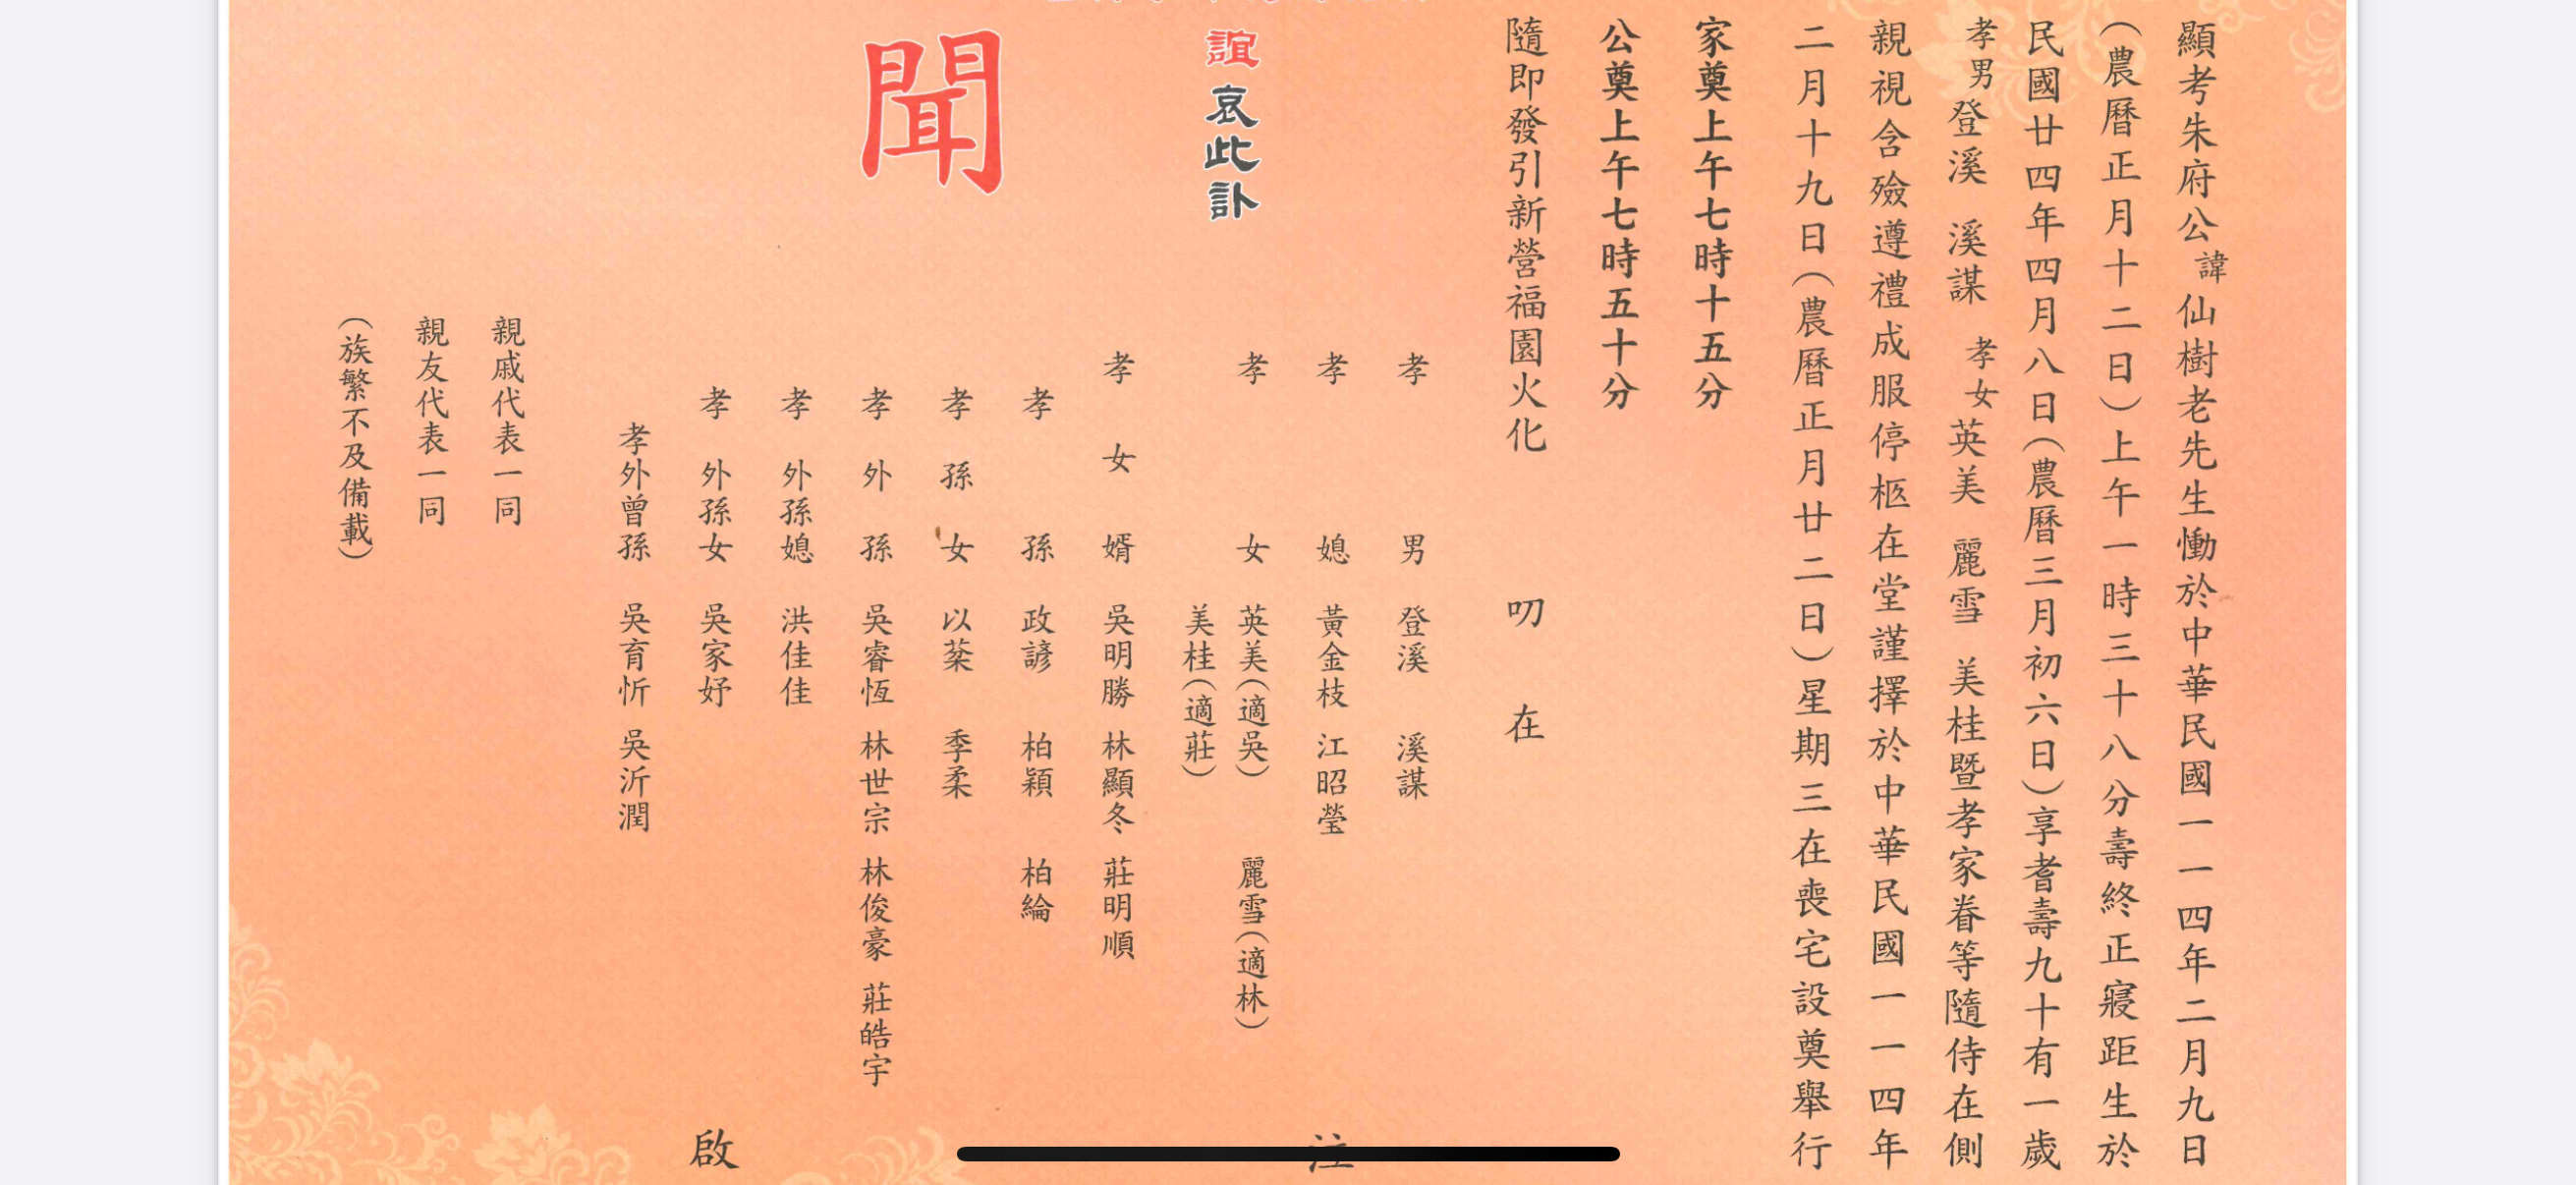 顯考朱府公諱仙樹老先生慟於中華民國一一四年二月九日
(農曆正月十二日)上午一時三十八分壽終正寢距生於
民國廿四年四月八日(農曆三月初六日)享耆壽九十有一歲
孝男登溪 溪謀 孝女英美 麗雪 美桂暨孝家眷等隨侍在側
親視含殮遵禮成服停柩在堂謹擇於中華民國一一四年
二月十九日(農曆正月廿二日)星期三在喪宅設奠舉行
家奠上午七時十五分
公奠上午七時五十分
隨即發引新營福園火化 叨在
孝男 登溪 溪謀
孝媳 黃金枝 江昭瑩 注
孝女 英美(適吳) 麗雪(適林)
美桂(適莊)
誼哀此訃
孝女婿 吳明勝 林顯冬 莊明順
孝孫 政諺 柏穎 柏綸
聞
孝孫女 以棻 季柔
孝外孫 吳睿恆 林世宗 林俊豪 莊皓宇
孝外孫媳 洪佳佳
孝外孫女 吳家妤 啟
孝外曾孫 吳育忻 吳沂潤
親戚代表一同
親友代表一同
(族繁不及備載)